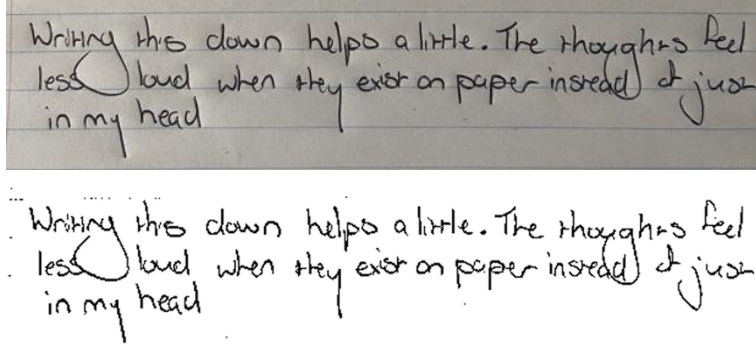 Writing this down helps a little. The thoughts feel
less loud when they exist on paper instead of just
in my head
Writing this down helps a little. The thoughts feel
less loud when they exist on paper instead of just
in my head